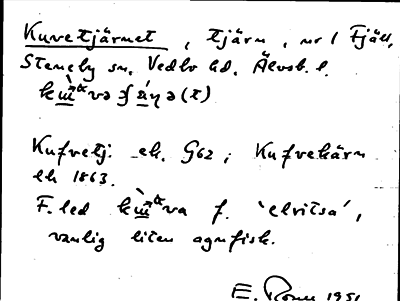 Kuvetjärnet, tjärn, nr 1 Fjäll,
Steneby sn, Vedbo hd, Älvsb. l.
Kufvetj. ek. G62; Kufvekärn
ek 1863.
F. led va f. 'elritsa',
vanlig liten agnfisk.
E. 1951